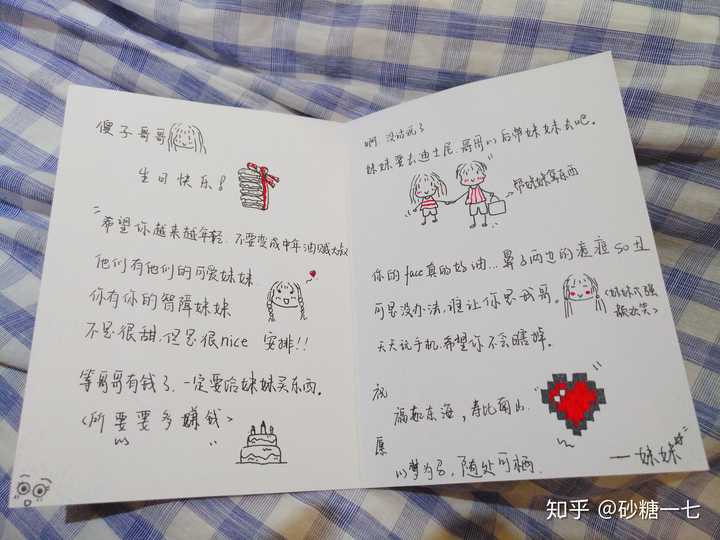 傻子哥哥
生日快乐!
希望你越来越年轻.不要变成中年油腻大叔
他们有他们的可爱妹妹
你有你的智障妹妹
不是很甜.但是很nice 安排!!
等哥哥有钱了.一定要给妹妹买东西。
<所 要要多赚钱>
啊 没话说了
妹妹要去迪士尼 哥哥以后带妹妹去吧。
帮妹妹拿东西
你的face真的好油...鼻子两边的痘痘so丑
可是没办法,谁让你是我哥。
<妹妹不强颜欢笑>
天天玩手机.希望你不会瞎掉。
祝
福如东海,寿比南山.
愿
以梦为马,随处可栖.
——妹妹
知乎 @砂糖一七